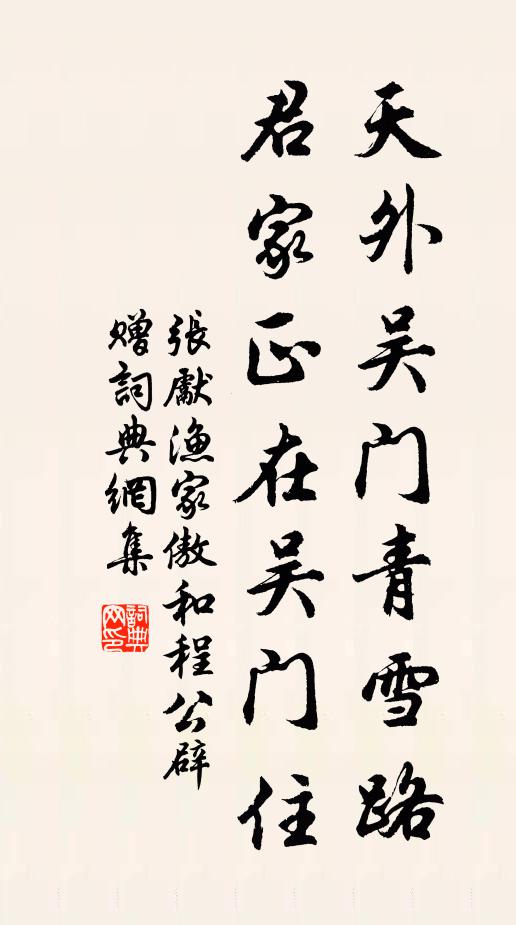 天外吴门青雪路
君家正在吴门住
張獻漁家傲和程公辟
贈詞典網集
詞典网印